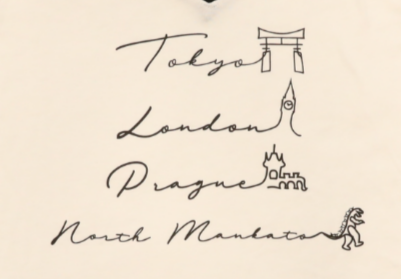 Tokyo
London
Prague
North Mankato